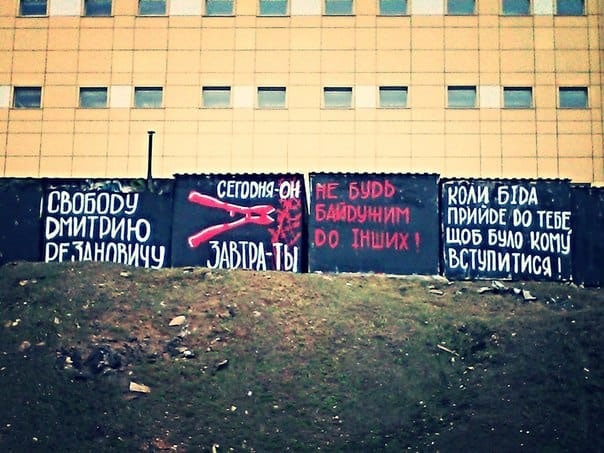 СВОБОДУ
DМИТРИЮ
РЕЗАНОВИЧУ
СЕГОDНЯ-ОН
ЗАВТРА-ТЫ
НЕ БУDЬ
БАЙDУЖИМ
DО ІНШИХ!
КОЛИ БІDА
ПРИЙDЕ DО ТЕБЕ
ЩОБ БУЛО КОМУ
ВСТУПИТИСЯ!